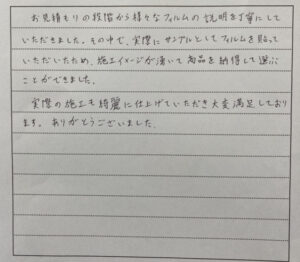 お見積もりの段階から様々なフィルムの説明を丁寧にして
いただきました。その中で、実際にサンプルとしてフィルムを貼って
いただいたため、施工イメージが湧いて商品を納得して選ぶ
ことができました。
実際の施工も綺麗に仕上げていただき大変満足しており
ます。ありがとうございました。